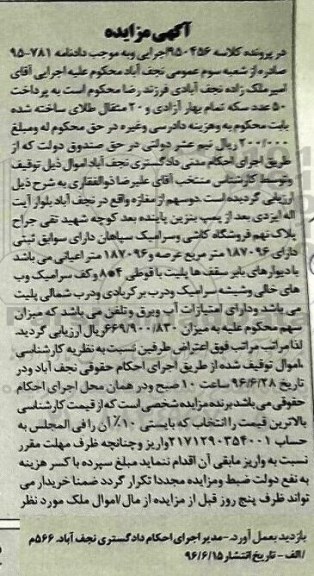 آگهی مزایده
در پرونده کلاسه ۹۵۰۴۵۶اجرایی وبه موجب دادنامه ۷۸۱-۹۵
صادره از شعبه سوم عمومی نجف آباد محکوم علیه اجرایی آقای
امیرملک زاده نجف آبادی فرزند رضا محکوم است به پرداخت
۵۰ عدد سکه تمام بهار آزادی و ۲۰ مثقال طلای ساخته شده
بابت محکوم به وهزینه دادرسی وغیره در حق محکوم له ومبلغ
۲۰۰/۰۰۰ ریال نیم عشر دولتی در حق صندوق دولت که از
طریق اجرای احکام مدنی دادگستری نجف آباد اموال ذیل توقیف
وتوسط کارشناس منتخب آقای علیرضا ذوالفقاری به شرح ذیل
ارزیابی گردیده است دوسهم از مغازه واقع در نجف آباد بلوار آیت
اله ایزدی بعد از پمپ بنزین پاینده بعد کوچه شهید تقی جراح
پلاک نهم فروشگاه کاشی وسرامیک سپاهان دارای سوابق ثبتی
دارای ۱۸۷۰۹۶ متر مربع عرصه و ۱۸۷۰۹۶متر اعیانی می باشد
با دیوارهای بابر سقف ها پلیت با قوطی ۴*۸ وکف سرامیک وب
های خالی وشیشه سرامیک ودرب برکربادی ودرب شمالی پلیت
می باشد ودارای امتیازات آب وبرق و تلفن می باشد که میزان
سهم محکوم علیه به میزان ۶۶۹/۹۰۰/۸۳۰ریال ارزیابی گردید.
لذا مراتب مراتب فوق اعتراض طرفین نسبت به نظریه کارشناسی
،اموال توقیف شده از طریق اجرای احکام حقوقی نجف آباد ودر
تاریخ ۹۶/۶/۲۸ ساعت ۱۰ صبح ودر همان محل اجرای احکام
حقوقی می باشد برنده مزایده شخصی است که از قیمت کارشناسی
بالاترین قیمت را انتخاب که بایستی ۱۰٪ آن را فی المجلس به
حساب ۲۱۷۱۲۹۰۳۵۴۰۰۱واریز وچنانچه ظرف مهلت مقرر
نسبت به واریز مابقی آن اقدام ننماید مبلغ سپرده با کسر هزینه
به نفع دولت ضبط ومزایده مجددا تکرار گردد ضمنا خریدار می
تواند ظرف پنج روز قبل از مزایده از مال /اموال ملک مورد نظر
بازدید بعمل آورد.-مدیر اجرای احکام دادگستری نجف آباد. ۵۶۶م
/الف - تاریخ انتشار ۹۶/۶/۱۵